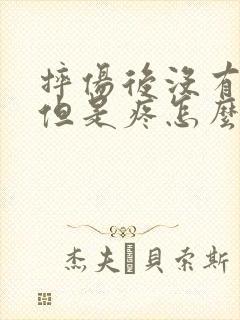 摔傷後沒有
但是疼怎麼
杰夫·貝索斯